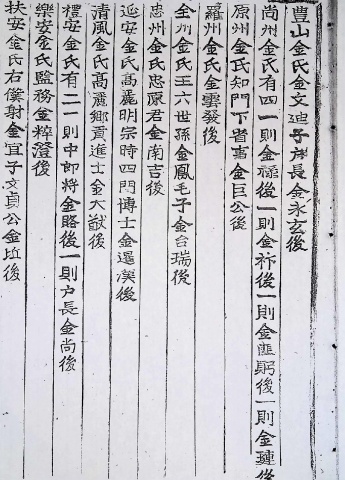 豊山金氏金文迪子戶長金永玄後
尙州金氏有四一則金祿後一則金祚後一則金匪躬後一則金璉後
原州金氏知門下省事金巨公後
羅州金氏金雲發後
全州金氏王六世孫金鳳毛子金台瑞後
忠州金氏忠原君金南吉後
延安金氏高麗明宗時四門博士金暹漢後
清風金氏高麗鄕貢進士金大猷後
禮安金氏有二一則中郎將金賂後一則戶長金尙後
樂安金氏監務金粹澄後
扶安金氏右僕射金宜子文貞公金坵後